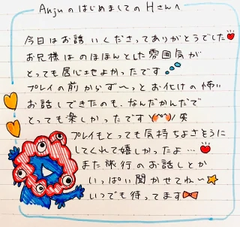 Anjuのはじめましての Hさんへ
今日はお話いくださってありがとうでした
お兄様はのほほんとした雰囲気が
とっても居心地よかったです
プレイの前からず〜っとお化けの怖い
お話しできたのも、なんだかんだで
とっても楽しかったです 笑
プレイもとっても気持ちよさそうに
してくれて嬉しかったよ…
また旅行のお話しとか
いっぱい聞かせてね〜
いつでも待ってます